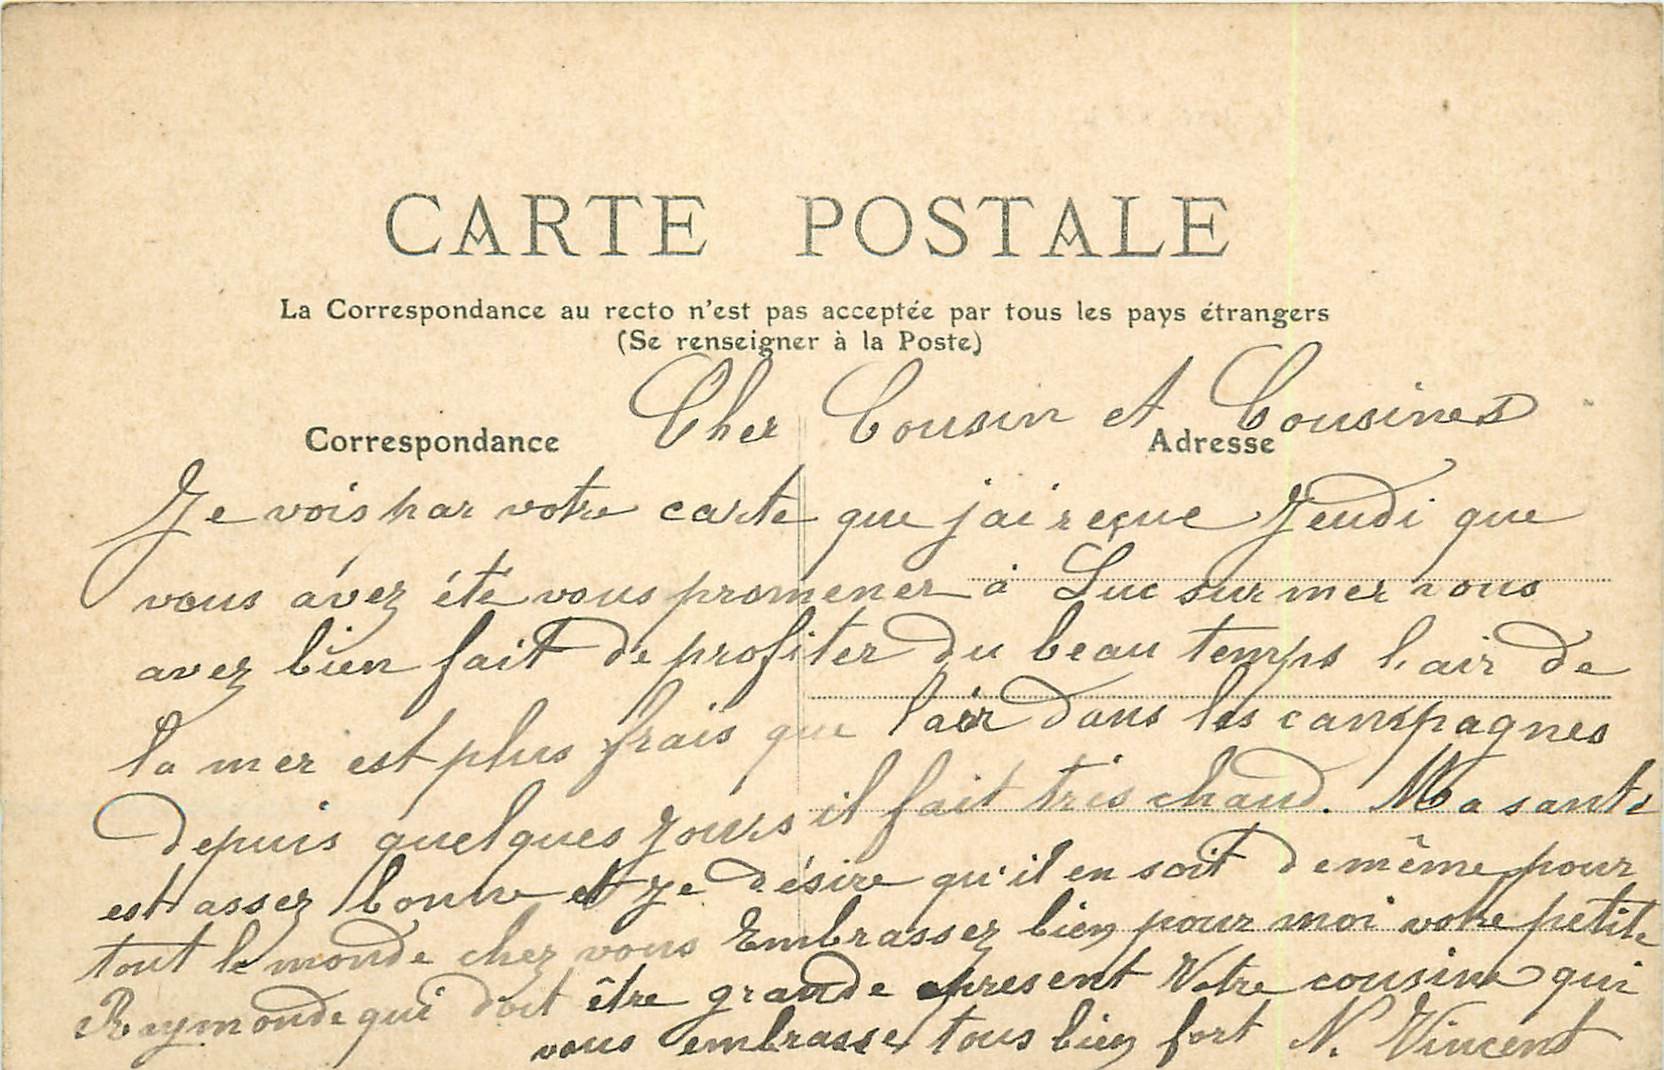 CARTE POSTALE
La Correspondance au recto n'est pas acceptée par tous les pays étrangers
(Se renseigner à la Poste)
Correspondance
Adresse
Cher Cousin et Cousines
Je vois par votre carte que jai reçue Jeudi que
vous avez été vous promener à Luc sur mer vous
avez bien fait de profiter du beau temps l'air de
la mer est plus frais que l'air dans les campagnes
depuis quelques jours il fait très chaud. Ma santé
est assez bonne et je désire qu'il en soit de même pour
tout le monde chez vous Embrassez bien pour moi votre petite
Raymonde qui doit être grande apresent Votre cousine qui
vous embrasse tous bien fort N. Vincent